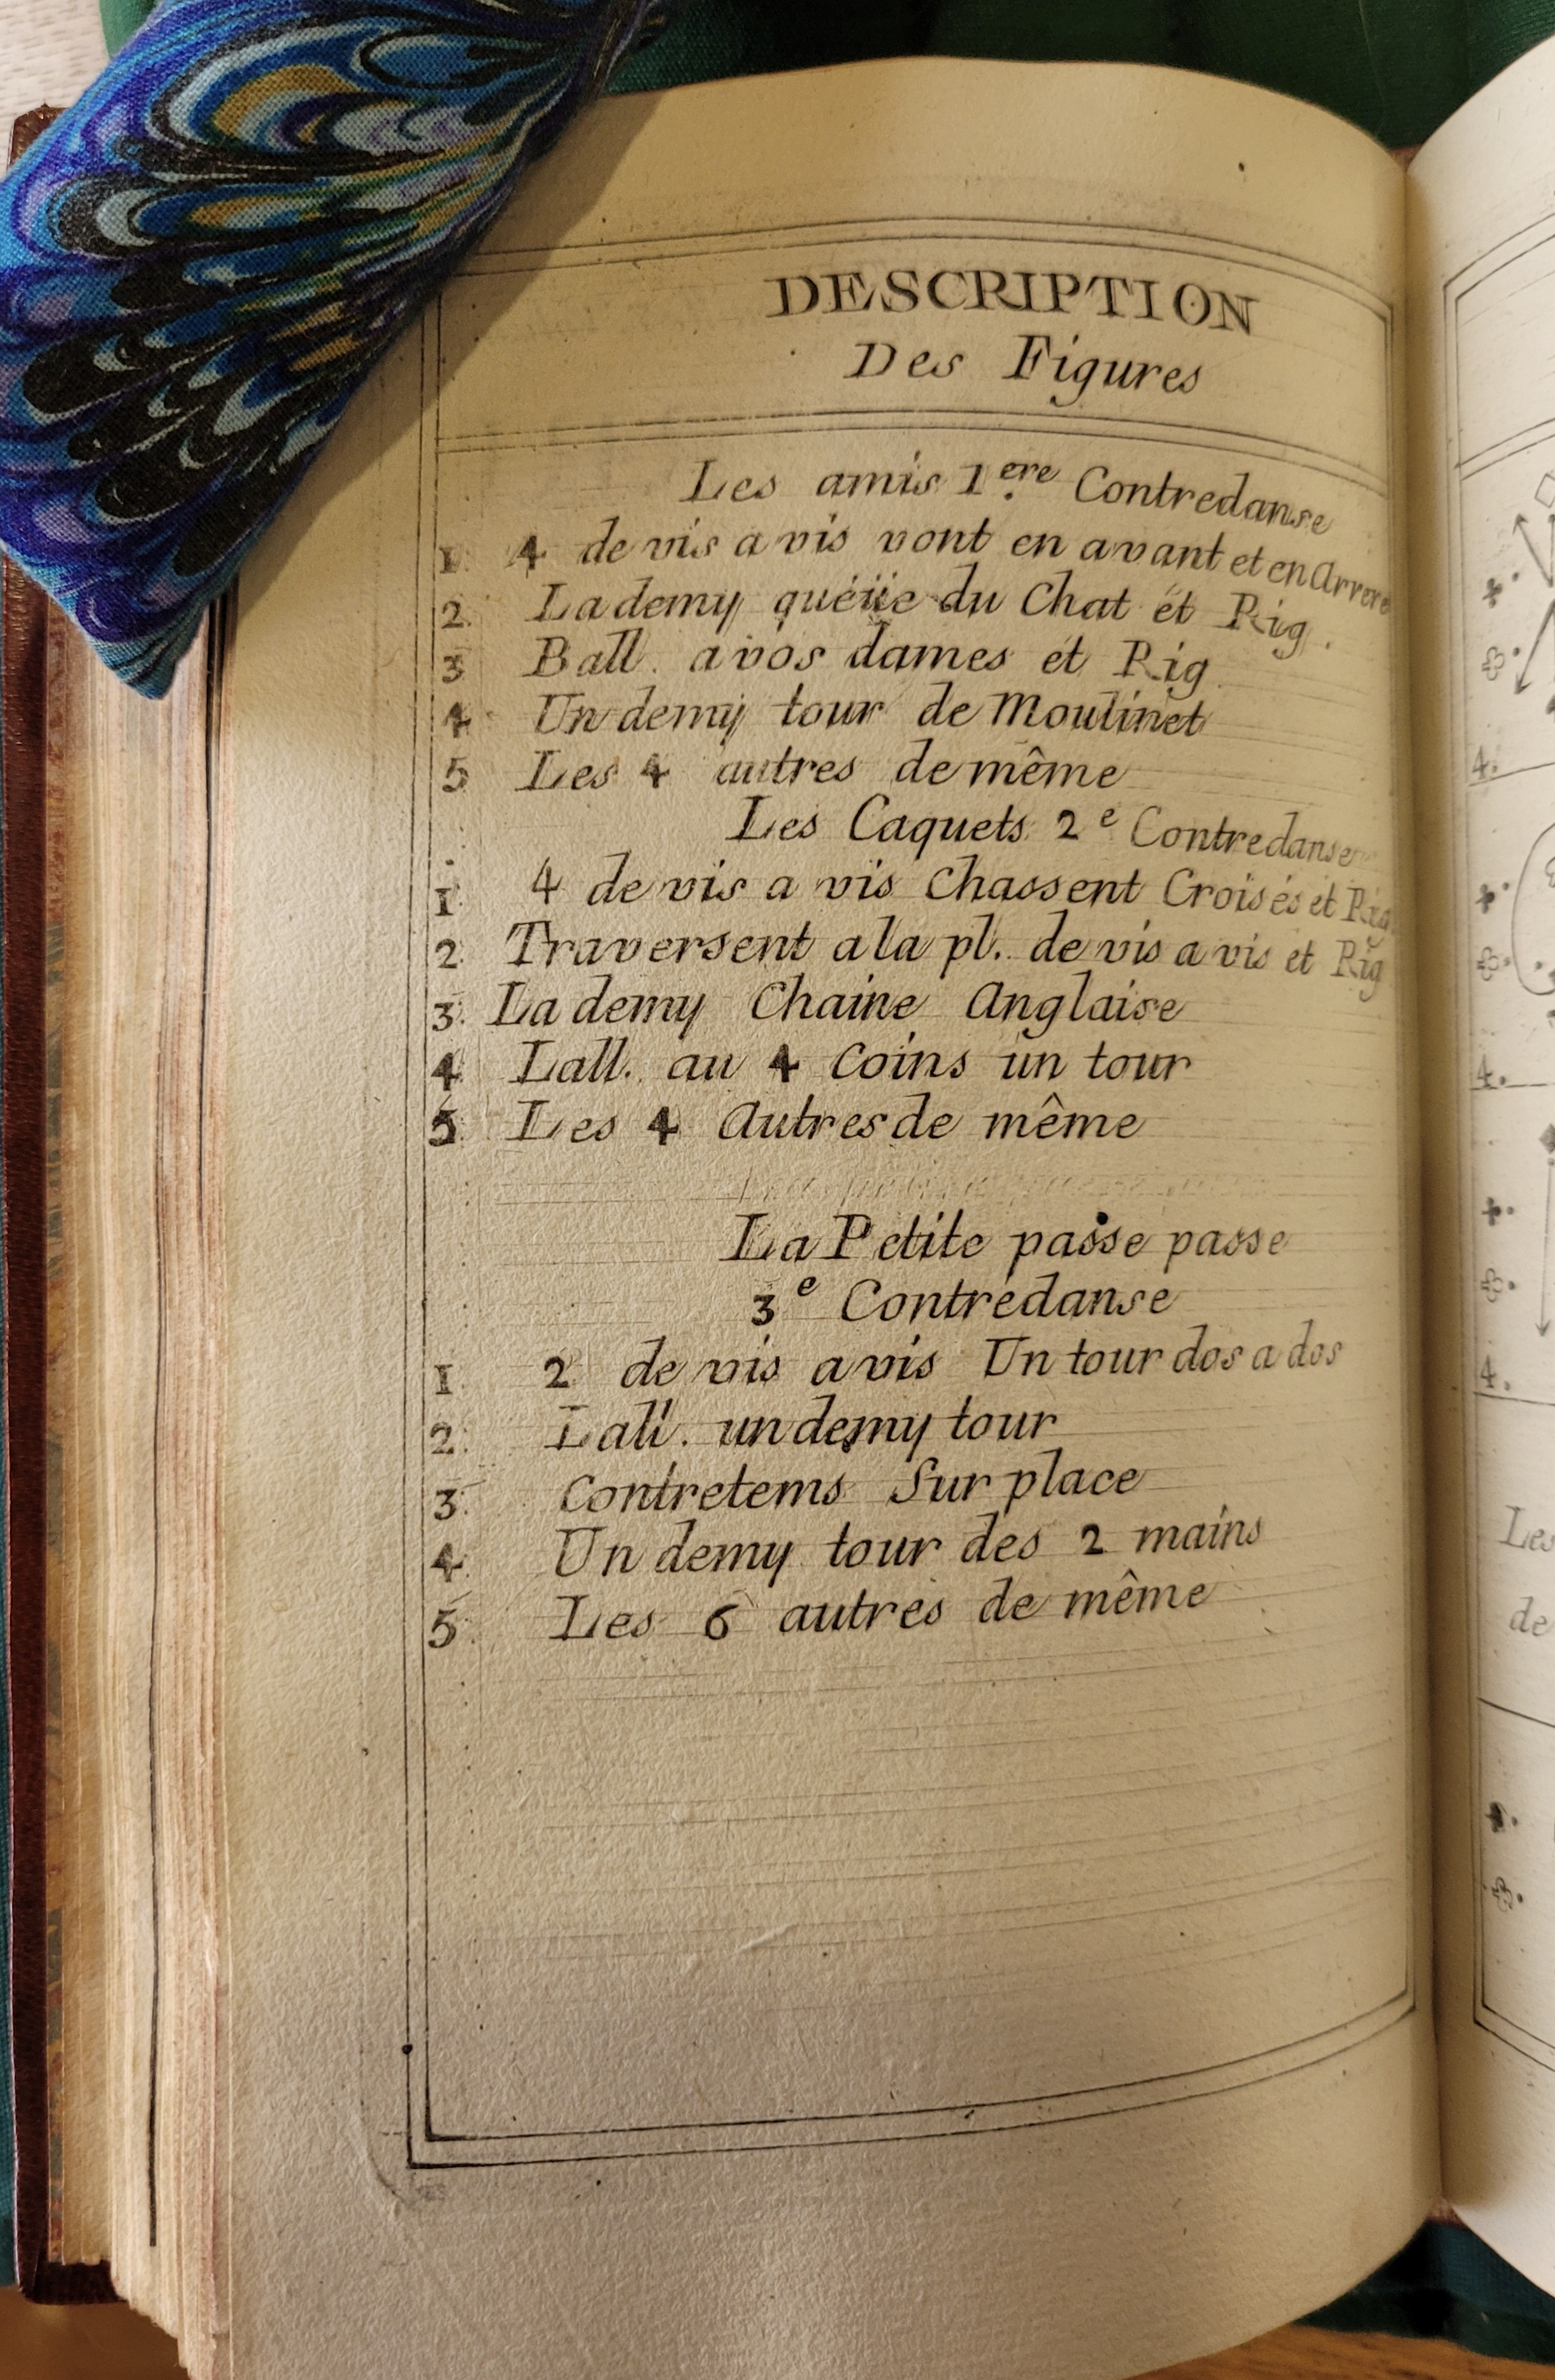 DESCRIPTION
Des Figures
Les amis 1ere Contredanse
1. 4 de vis a vis vont en avant et en Arrere
2. La demy quéüe du Chat ét Rig.
3 Ball. a vos dames et Rig
4 Un demy tour de Moulinet
5 Les 4 autres de même
Les Caquets 2e Contredanse
1 4 de vis a vis Chassent Croisés et Rig
2. Traversent a la pl. de vis a vis et Rig
3. La demy Chaine Anglaise
4 Lall. au 4 Coins un tour
5 Les 4 Autres de même
La Petite passe passe
3e Contredanse
1 2 de vis a vis Un tour dos a dos
2. Lall. un demy tour
3. Contretems Sur place
4. Un demy tour des 2 mains
5 Les 6 autres de même
4.
4.
4.
Les
de